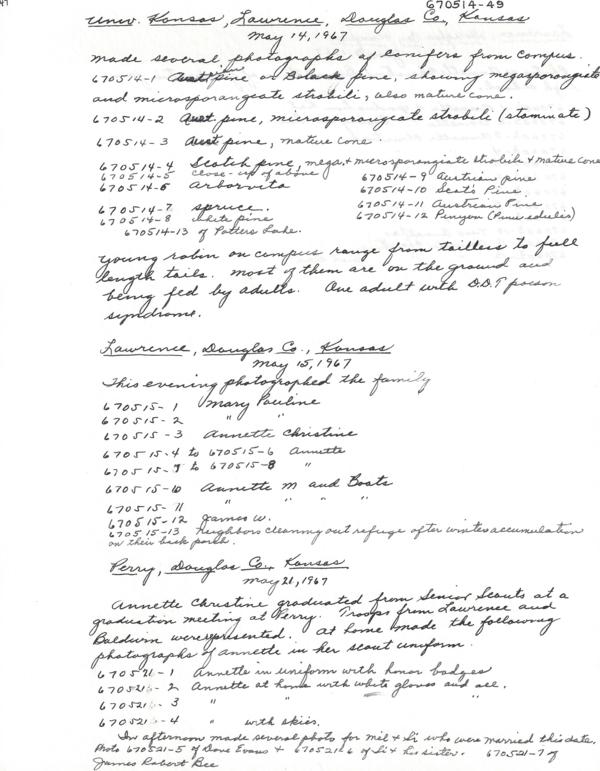 47
670514-49
Univ. Kansas, Lawrence, Douglas Co., Kansas
May 14, 1967
Made several photographs of conifers from campus.
670514-1 Aust. pine or Balack pine, showing megasporangiate
and microsporangeate strobili; also mature cone.
670514-2 Aust pine, microsporangeate strobili (staminate)
670514-3 Aust pine, mature cone.
670514-4 Scotch pine, mega, + microsporangiate strobile + mature cone
670514-5 close-up of above
670514-6 Arborvita
670514-7 spruce.
670514-8 white pine
670514-9 Austrian pine
670514-10 Scot's Pine
670514-11 Austrian Pine
670514-12 Pinyon (Pinus edulis)
670514-13 of Potters Lake.
Young robin on campus range from tailless to full
length tails. Most of them are on the ground and
being fed by adults. One adult with D.D.T poison
syndrome.
Lawrence, Douglas Co., Kansas
May 15, 1967
This evening photographed the family
670515-1 Mary Pauline
670515-2 " "
670515-3 Annette Christine
670515-4 to 670515-6 Annette
670515-7 to 670515-8 "
670515-10 Annette M and Boots
670515-11 " " " "
670515-12 James W.
670515-13 Neighbors cleaning out refuge after winter accumulation
on their back porch.
Perry, Douglas Co., Kansas
May 21, 1967
Annette Christine graduated from Senior Scouts at a
graduation meeting at Perry. Troops from Lawrence and
Baldwin were represented. At home made the following
photographs of Annette in her scout uniform.
670521-1 Annette in uniform with honor badges
670521-2 Annette at home with white gloves and all.
670521-3 " "
670521-4 " with skies.
In afternoon made several photos for Mil + Li who were married this date.
Photo 670521-5 of Dave Evans + 670521-6 of Li + his sister. 670521-7 of
James Robert Bee